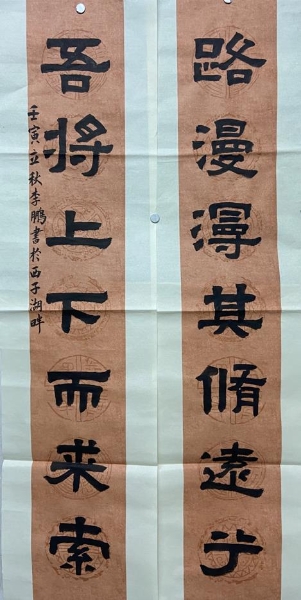 路漫漫其脩遠兮
吾将上下而求索
壬寅立秋李鵬書於西子湖畔